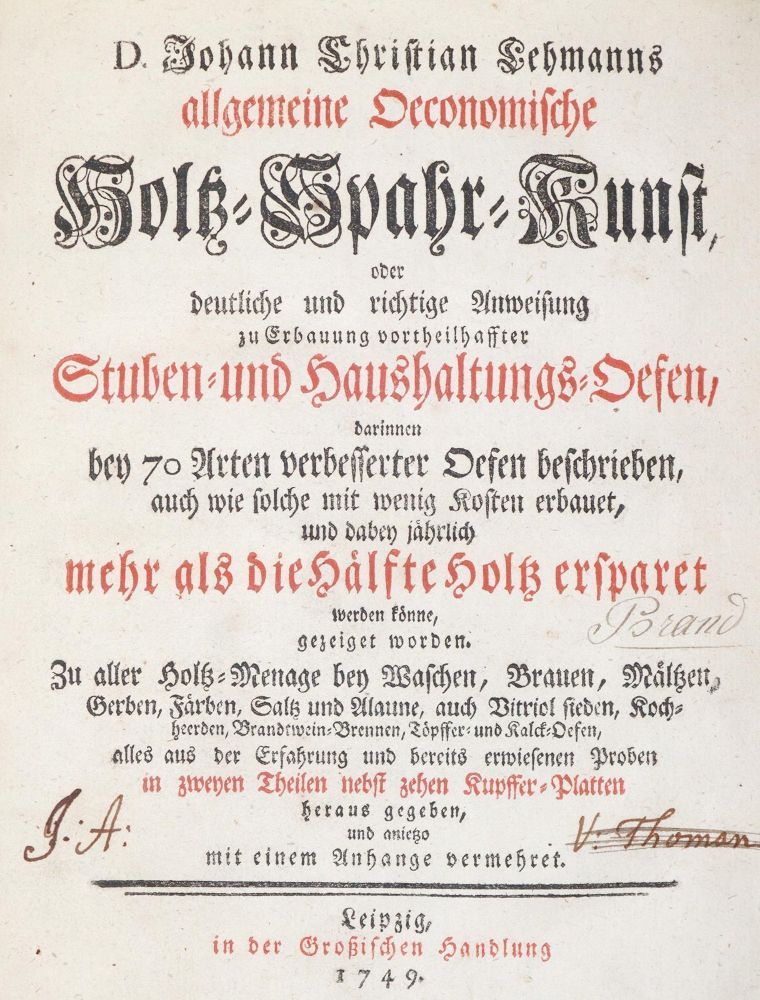 D. Johann Christian Lehmanns
allgemeine Oeconomische
Holtz-Spahr-Kunst,
oder
deutliche und richtige Anweisung
zu Erbauung vortheilhaffter
Stuben-und Haushaltungs-Oefen,
darinnen
bey 70 Arten verbesserter Oefen beschrieben,
auch wie solche mit wenig Kosten erbauet,
und dabey jährlich
mehr als die Hälfte Holtz ersparet
werden könne,
Brand
gezeiget worden.
Zu aller Holtz-Menage bey Waschen, Brauen, Mältzen,
Gerben, Färben, Saltz und Alaune, auch Vitriol sieden, Koch-
heerden, Brandtwein-Brennen, Töpffer-und Kalck-Oefen,
alles aus der Erfahrung und bereits erwiesenen Proben
in zweyen Theilen nebst zehen Kupffer-Platten
heraus gegeben,
J: A:
und anietzo
V: Thoman
mit einem Anhange vermehret.
Leipzig,
in der Großischen Handlung
1749.